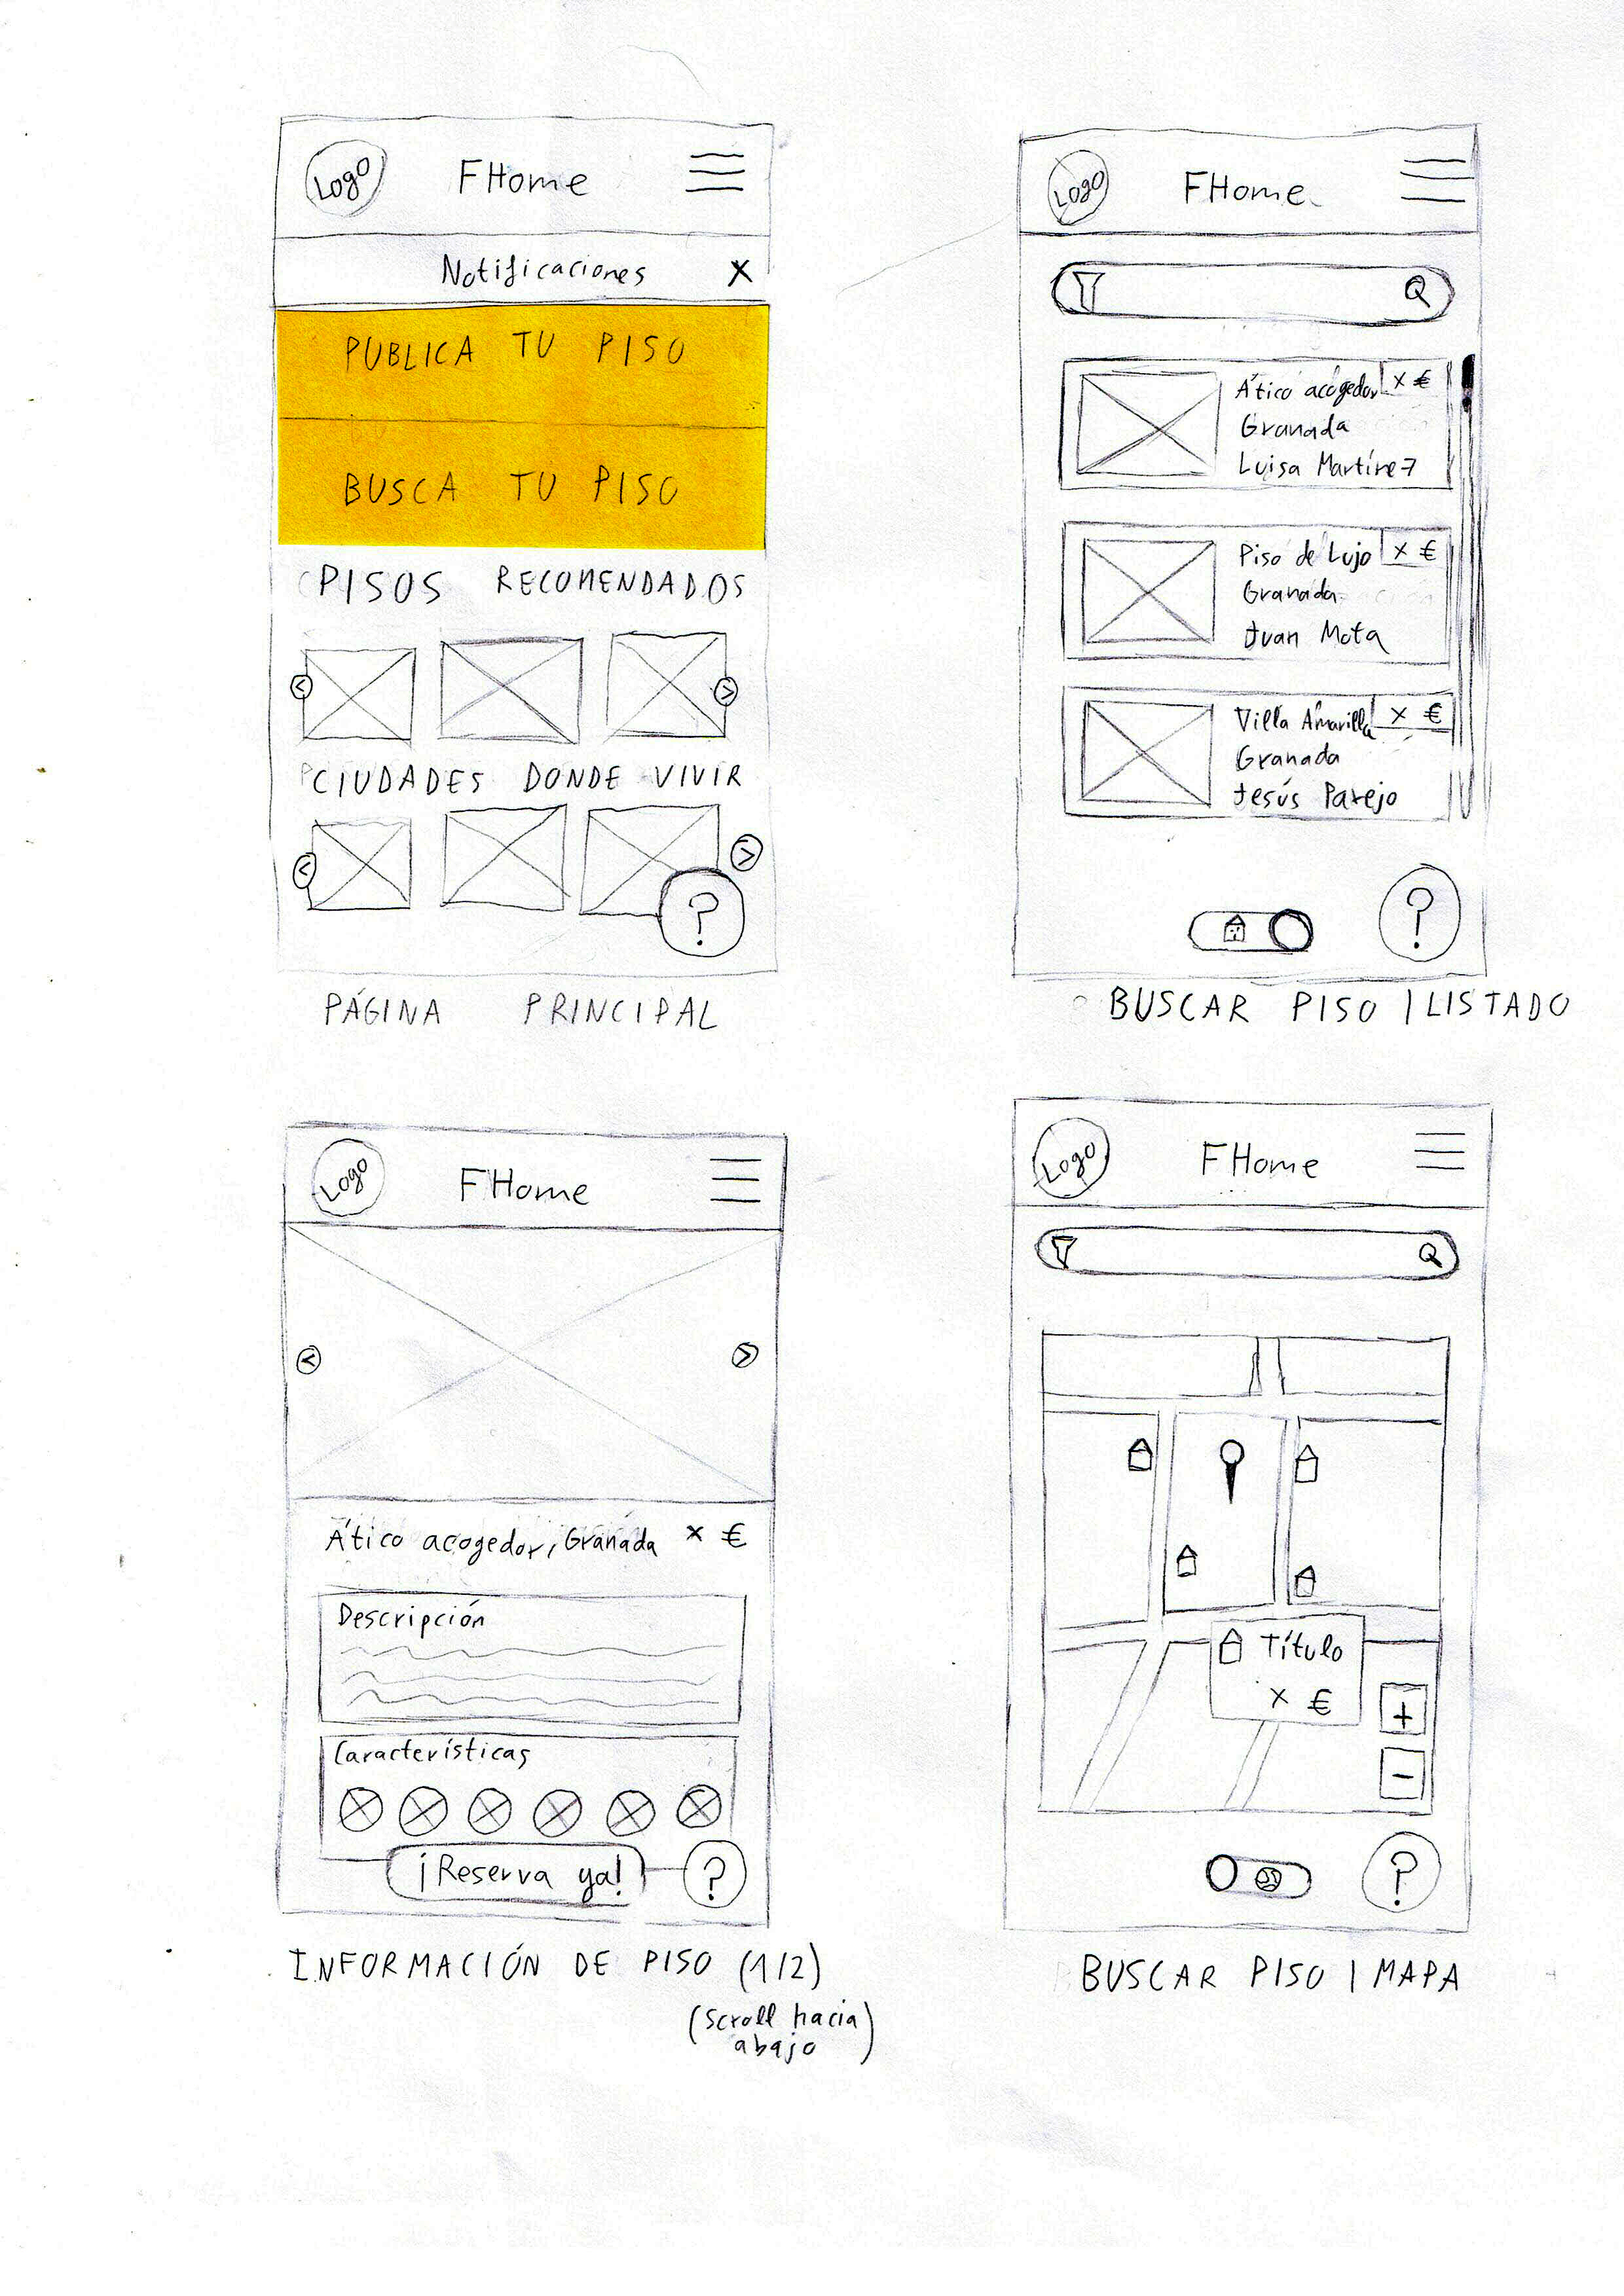 Logo FHome
Notificaciones X
PUBLICA TU PISO
BUSCA TU PISO
PISOS RECOMENDADOS
< >
CIUDADES DONDE VIVIR
< >
?
PÁGINA PRINCIPAL
Logo FHome
Ático acogedor x €
Granada
Luisa Martínez
Piso de Lujo x €
Granada
Juan Mota
Villa Amarilla x €
Granada
Jesús Parejo
?
BUSCAR PISO | LISTADO
Logo FHome
< >
Ático acogedor, Granada x €
Descripción
Características
¡Reserva ya! ?
INFORMACIÓN DE PISO (1/2)
(Scroll hacia
abajo)
Logo FHome
Título
x €
+
-
?
BUSCAR PISO | MAPA